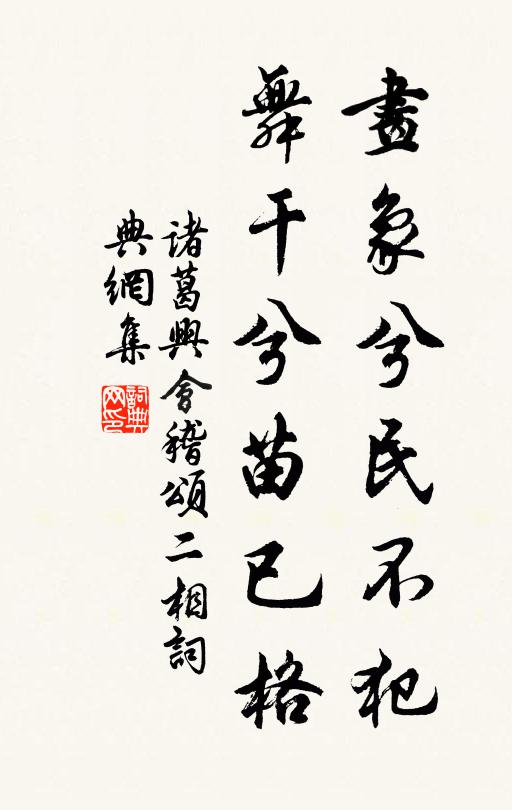 畫象兮民不犯
舞干兮苗已格
諸葛興會稽頌二相詞
典網集
詞典網印